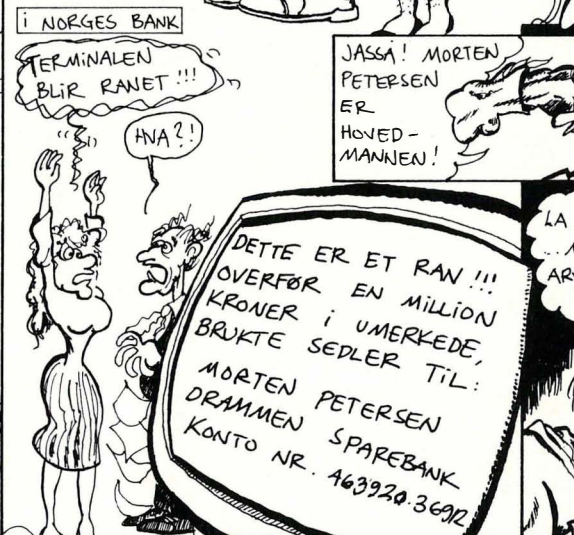 i NORGES BANK
TERMiNALEN
BLiR RANET !!!
HVA?!
JASSÅ! MORTEN
PETERSEN
ER
HOVED-
MANNEN!
DETTE ER ET RAN !!!
OVERFØR EN MILLION
KRONER i UMERKEDE,
BRUKTE SEDLER TiL:
MORTEN PETERSEN
DRAMMEN SPAREBANK
KONTO NR. 463920.36912
LA